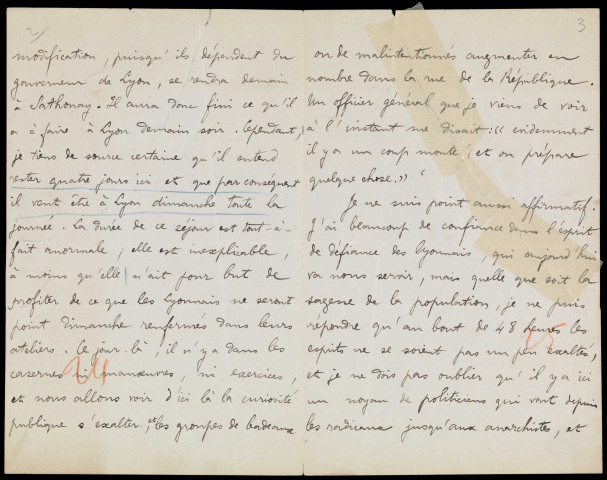 2/
modification, puisqu'ils dépendent du
gouverneur de Lyon, se rendra demain
à Sathonay. Il aura donc fini ce qu'il
a à faire à Lyon demain soir. Cependant,
je tiens de source certaine qu'il entend
rester quatre jours ici et que par conséquent
il veut être à Lyon dimanche toute la
journée. La durée de ce séjour est tout-à-
fait anormale ; elle est inexplicable,
à moins qu'elle n'ait pour but de
profiter de ce que les Lyonnais ne seront
point dimanche renfermés dans leurs
ateliers. Ce jour-là, il n'y a dans les
casernes ni manœuvres, ni exercices,
24
et nous allons voir d'ici là la curiosité
publique s'exalter, et les groupes de badauds
3
ou de malintentionnés augmenter en
nombre dans la rue de la République.
Un officier général que je viens de voir
à l'instant me disait : "évidemment
il y a un coup monté, et on prépare
quelque chose."
Je ne suis point aussi affirmatif.
J'ai beaucoup de confiance dans l'esprit
de défiance des lyonnais, qui aujourd'hui
va nous servir, mais quelle que soit la
sagesse de la population, je ne puis
répondre qu'au bout de 48 heures les
25
esprits ne se soient pas un peu exaltés,
et je ne dois pas oublier qu'il y a ici
un noyau de politiciens qui vont depuis
les radicaux jusqu'aux anarchistes, et